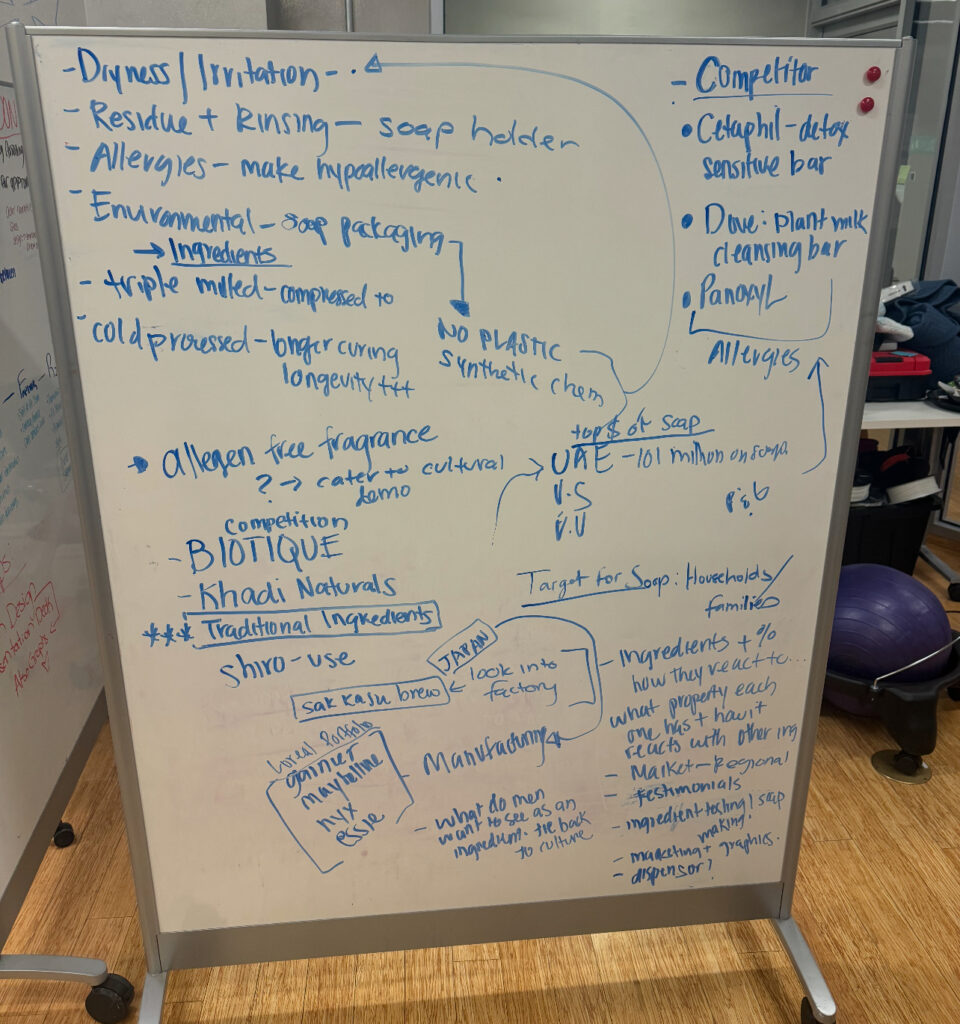 - Dryness / Irritation - .
- Residue + Rinsing - soap holder
- Allergies - make hypoallergenic .
- Environmental - soap packaging
→ Ingredients
- triple milled - compressed to
- cold processed - longer curing
longevity +++
NO PLASTIC
synthetic chem
- Competitor
• Cetaphil - detox
sensitive bar
• Dove: plant milk
cleansing bar
• Panoxyl
Allergies
• allergen free fragrance
? → cater to cultural
demo
top $ of soap
UAE - 101 million on
U.S
competition
- BIOTIQUE
- Khadi Naturals
*** Traditional Ingredients
Shiro - use
JAPAN
look into
factory
sak kasu brew
Target for Soap: Households/
families
- Ingredients + %
how they react to...
what property each
one has + how it
reacts with other ing
- Market - Regional
- testimonials
- ingredient testing / soap
making.
- marketing + graphics.
- dispensor?
Manufacturing
Loreal Portfolio
garnier
maybelline
nyx
essie
- what do men
want to see as an
ingredient. tie back
to culture